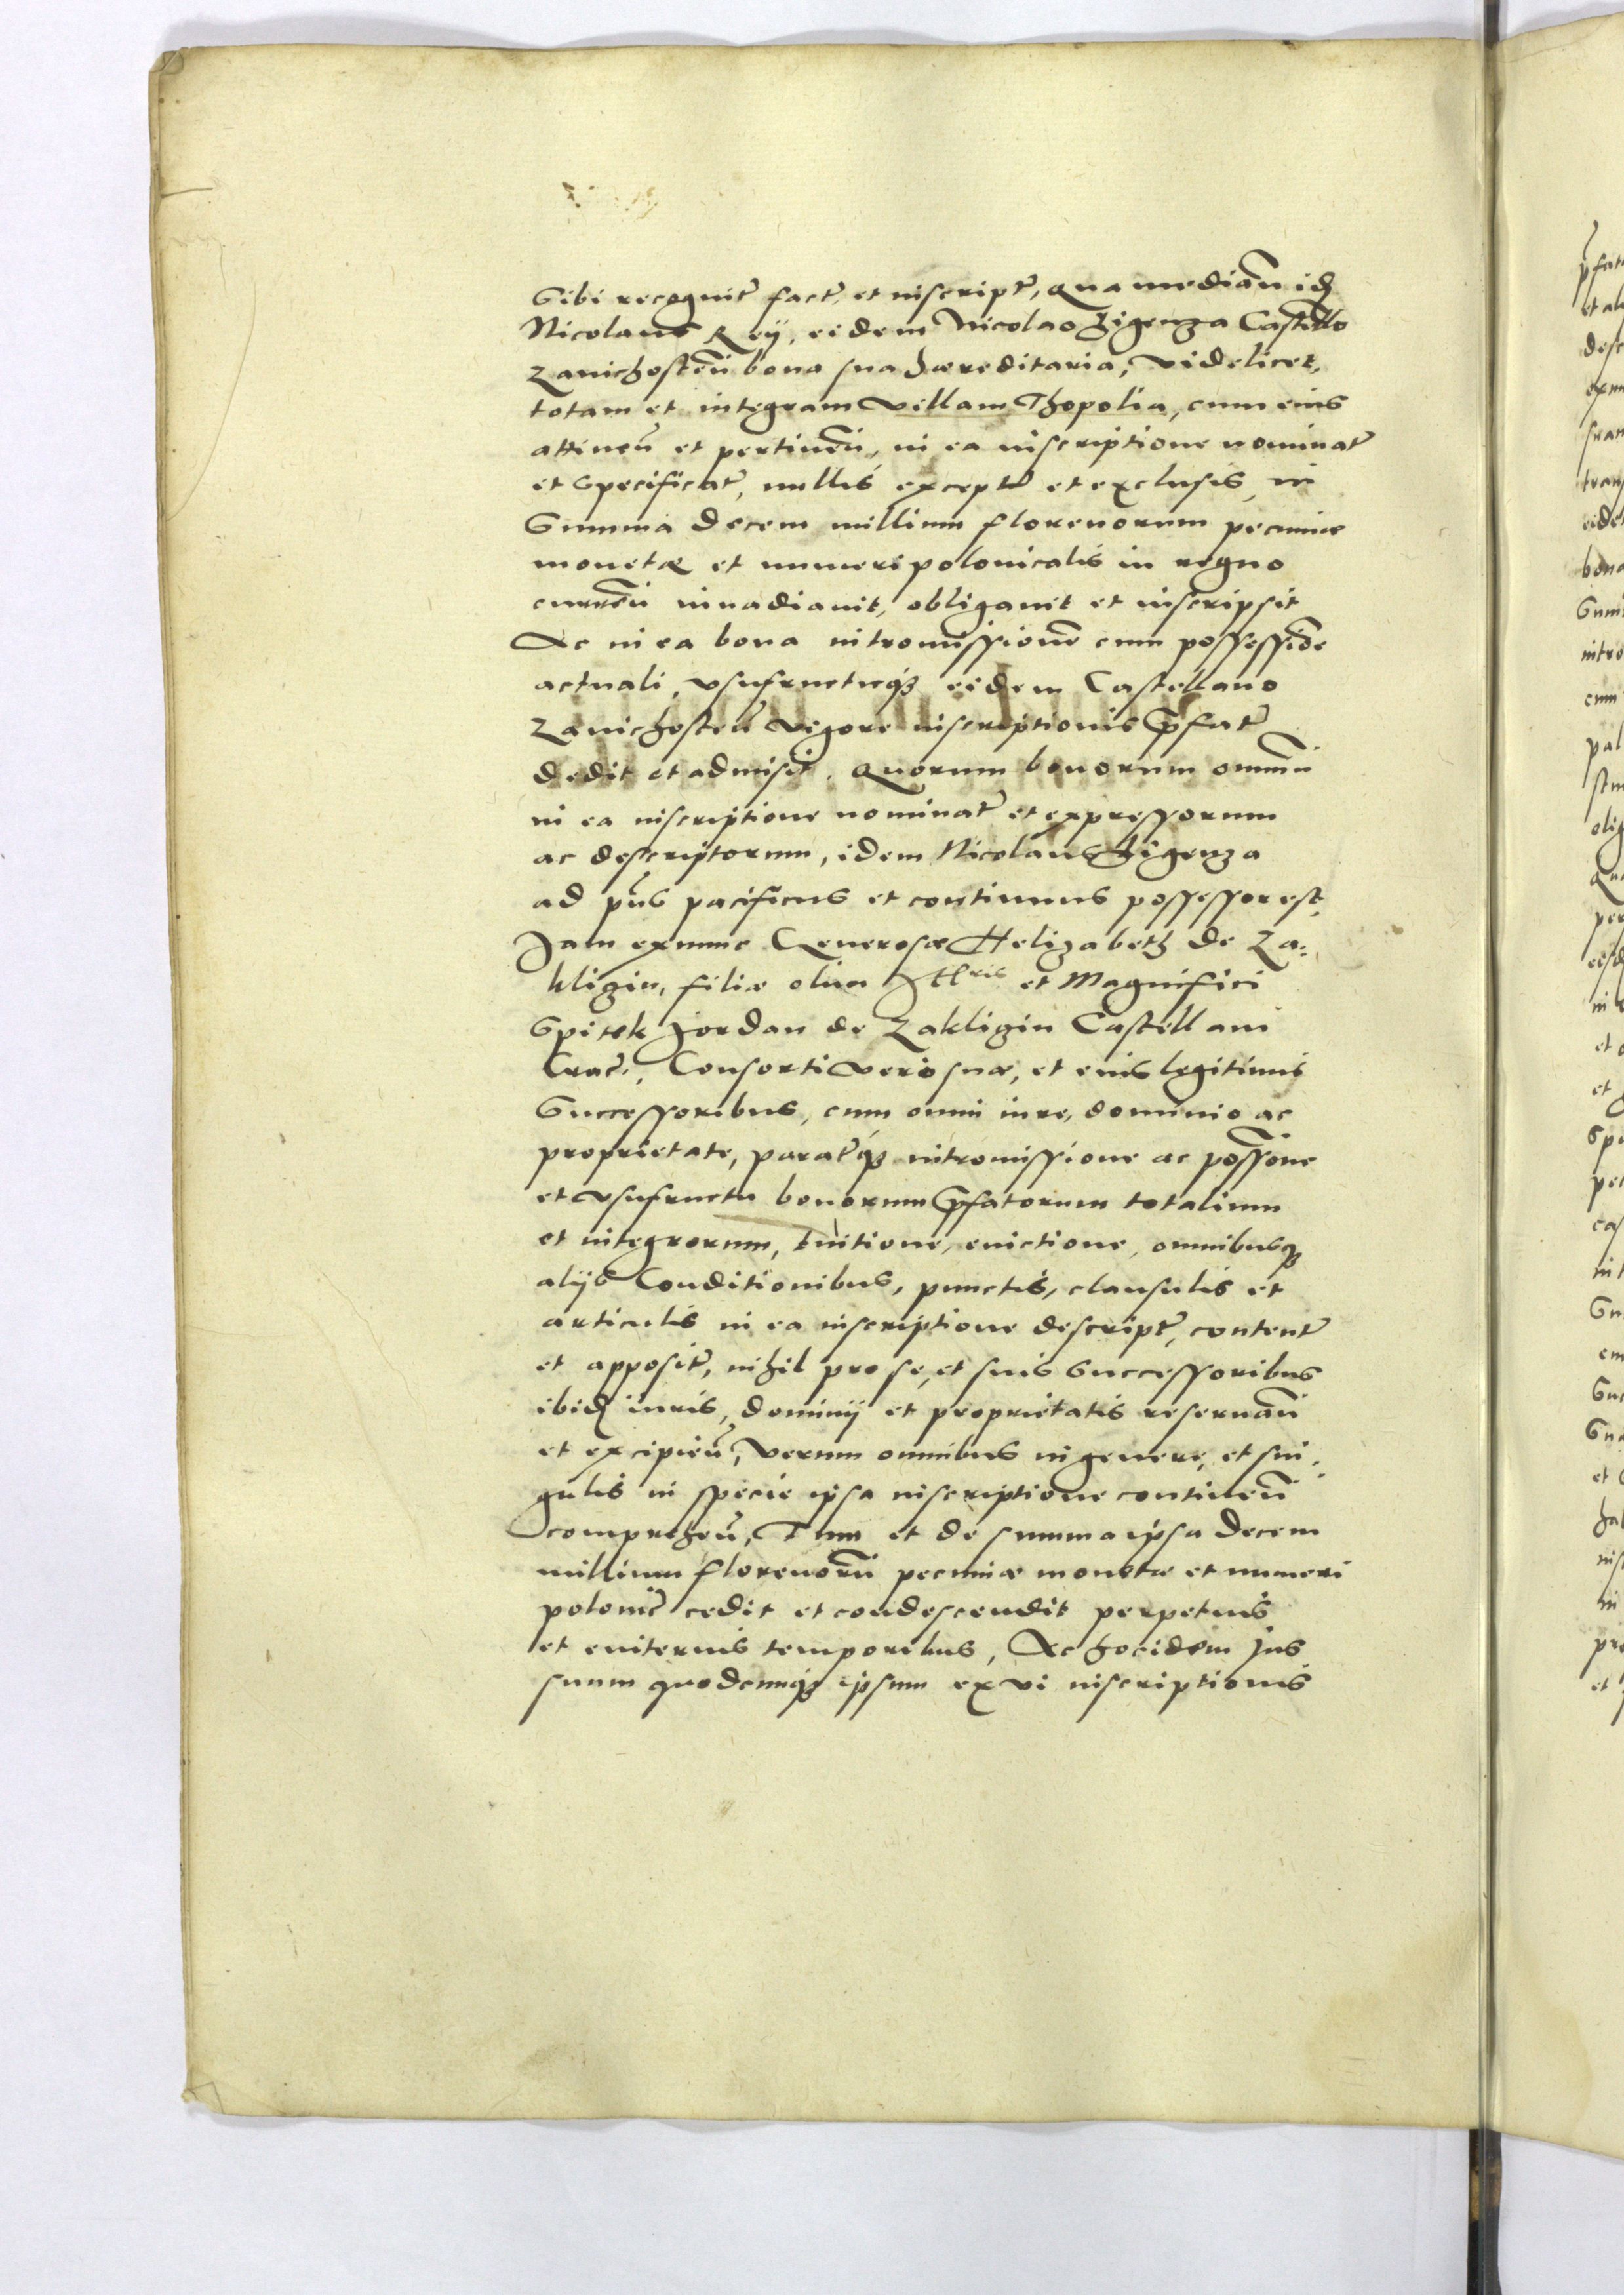 Sibi recognit͂ fact͂, et inscript͂, qua mediañ id
Nicolaus Reÿ, eidem Nicolao Ligenza Castello
Zavichosteñ bona sua hæreditaria, videlicet,
totam et integram villam Thopolia, cum eius
attineñ et pertineñ, in ea inscriptione nominat͂
et specificat͂, nullis except͂ et exclusis, in
Summa decem millium florenorum pecuniæ
monetæ et numeri polonicalis in regno
curreñ invadiavit, obligavit et inscripsit
Ac in ea bona intromissione͂ cum possessio͂e
actuali, vsufructuq͒ eidem Castellano
Zavichosteñ vigore inscriptionis p͂fat͂
dedit et admisit. Quorum bonorum omniu͂
in ea inscriptione nominat͂ et expressorum
ac descriptorum, idem Nicolaus Ligenza
ad pñs pacificus et continuus possessor est,
Jam exnunc Generosæ Helizabeth de Za-
kligin, filiæ olim Illris et Magnifici
Spitek Jordan de Zakligin Castellani
Crac͂., Consorti vero suæ, et eius legitimis
Successoribus, cum omni iure, dominio ac
proprietate, parat͂q͒ intromissione ac poss͂one
et vsufructu bonorum p͂fatorum totalium
et integrorum, tuitione, evictione, omnibusq͒
alijs Conditionibus, punctis, clausulis et
articulis in ea inscriptione descript͂, content͂
et apposit͂, nihil pro se, et suis Successoribus
ibid iuris, dominij et proprietatis reservañ
et excipieñ, verum omnibus in genere, et sin-
gulis in specie ipsa inscriptione contineñ
compreheñ, Tum et de summa ipsa decem
millium florenoru͂ pecuniæ monetæ et numeri
polonic͂ cedit et condescendit perpetuis
et eviternis temporibus, Ac hocidem Jus
suum quodcunq͒ ipsum ex vi inscriptionis